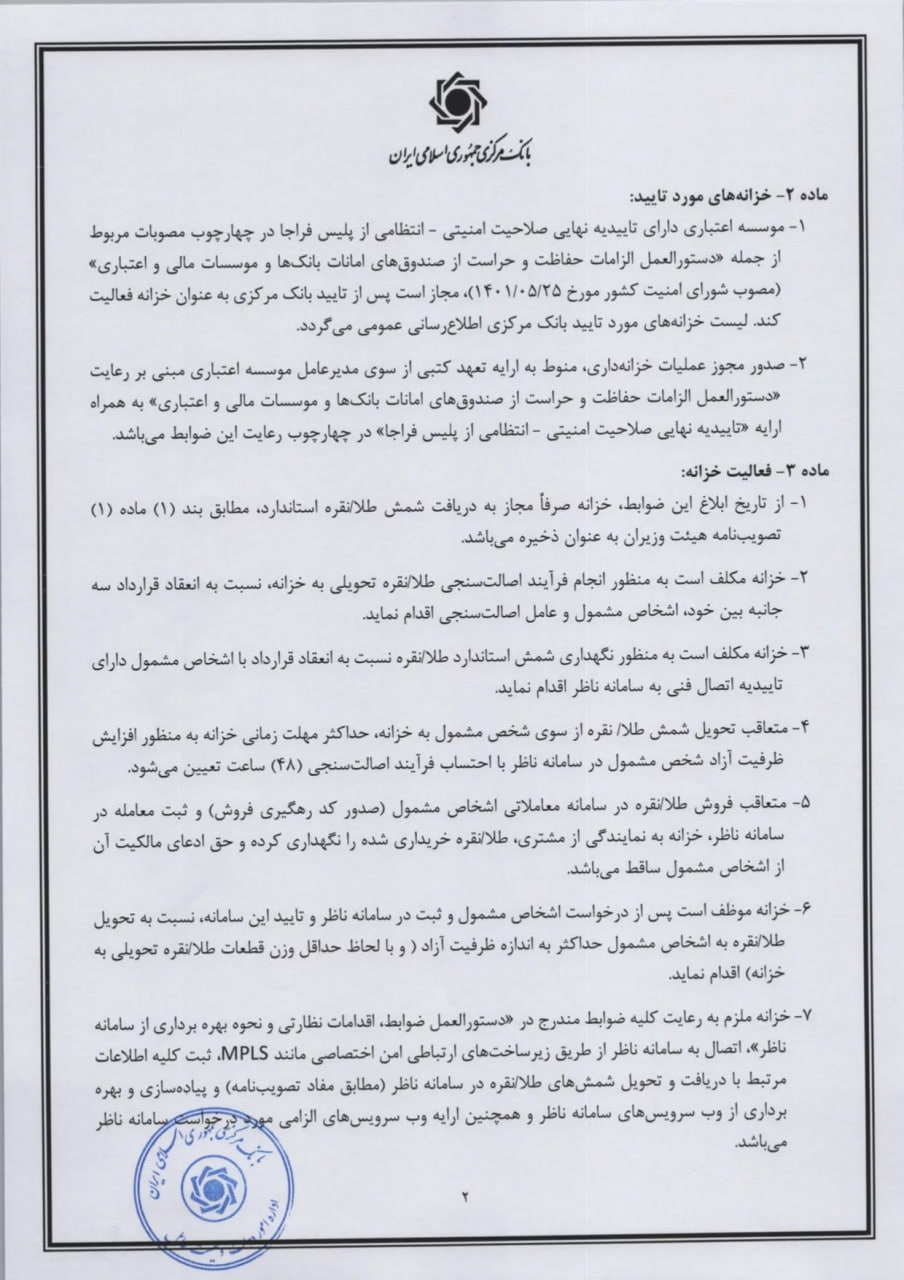 بانک مرکزی جمهوری اسلامی ایران
ماده ۲- خزانه‌های مورد تایید:
۱- موسسه اعتباری دارای تاییدیه نهایی صلاحیت امنیتی - انتظامی از پلیس فراجا در چهارچوب مصوبات مربوط
از جمله «دستورالعمل الزامات حفاظت و حراست از صندوق‌های امانات بانک‌ها و موسسات مالی و اعتباری»
(مصوب شورای امنیت کشور مورخ ۱۴۰۱/۰۵/۲۵)، مجاز است پس از تایید بانک مرکزی به عنوان خزانه فعالیت
کند. لیست خزانه‌های مورد تایید بانک مرکزی اطلاع‌رسانی عمومی می‌گردد.
۲- صدور مجوز عملیات خزانه‌داری، منوط به ارایه تعهد کتبی از سوی مدیرعامل موسسه اعتباری مبنی بر رعایت
«دستورالعمل الزامات حفاظت و حراست از صندوق‌های امانات بانک‌ها و موسسات مالی و اعتباری» به همراه
ارایه «تاییدیه نهایی صلاحیت امنیتی - انتظامی از پلیس فراجا» در چهارچوب رعایت این ضوابط می‌باشد.
ماده ۳- فعالیت خزانه:
۱- از تاریخ ابلاغ این ضوابط، خزانه صرفاً مجاز به دریافت شمش طلا/نقره استاندارد، مطابق بند (۱) ماده (۱)
تصویب‌نامه هیئت وزیران به عنوان ذخیره می‌باشد.
۲- خزانه مکلف است به منظور انجام فرآیند اصالت‌سنجی طلا/نقره تحویلی به خزانه، نسبت به انعقاد قرارداد سه
جانبه بین خود، اشخاص مشمول و عامل اصالت‌سنجی اقدام نماید.
۳- خزانه مکلف است به منظور نگهداری شمش استاندارد طلا/نقره نسبت به انعقاد قرارداد با اشخاص مشمول دارای
تاییدیه اتصال فنی به سامانه ناظر اقدام نماید.
۴- متعاقب تحویل شمش طلا/ نقره از سوی شخص مشمول به خزانه، حداکثر مهلت زمانی خزانه به منظور افزایش
ظرفیت آزاد شخص مشمول در سامانه ناظر با احتساب فرآیند اصالت‌سنجی (۴۸) ساعت تعیین می‌شود.
۵- متعاقب فروش طلا/نقره در سامانه معاملاتی اشخاص مشمول (صدور کد رهگیری فروش) و ثبت معامله در
سامانه ناظر، خزانه به نمایندگی از مشتری، طلا/نقره خریداری شده را نگهداری کرده و حق ادعای مالکیت آن
از اشخاص مشمول ساقط می‌باشد.
۶- خزانه موظف است پس از درخواست اشخاص مشمول و ثبت در سامانه ناظر و تایید این سامانه، نسبت به تحویل
طلا/نقره به اشخاص مشمول حداکثر به اندازه ظرفیت آزاد ( و با لحاظ حداقل وزن قطعات طلا/نقره تحویلی به
خزانه) اقدام نماید.
۷- خزانه ملزم به رعایت کلیه ضوابط مندرج در «دستورالعمل ضوابط، اقدامات نظارتی و نحوه بهره برداری از سامانه
ناظر»، اتصال به سامانه ناظر از طریق زیرساخت‌های ارتباطی امن اختصاصی مانند MPLS، ثبت کلیه اطلاعات
مرتبط با دریافت و تحویل شمش‌های طلا/نقره در سامانه ناظر (مطابق مفاد تصویب‌نامه) و پیاده‌سازی و بهره
برداری از وب سرویس‌های سامانه ناظر و همچنین ارایه وب سرویس‌های الزامی مورد درخواست سامانه ناظر
می‌باشد.
بانک مرکزی جمهوری اسلامی ایران
اداره امور
۲